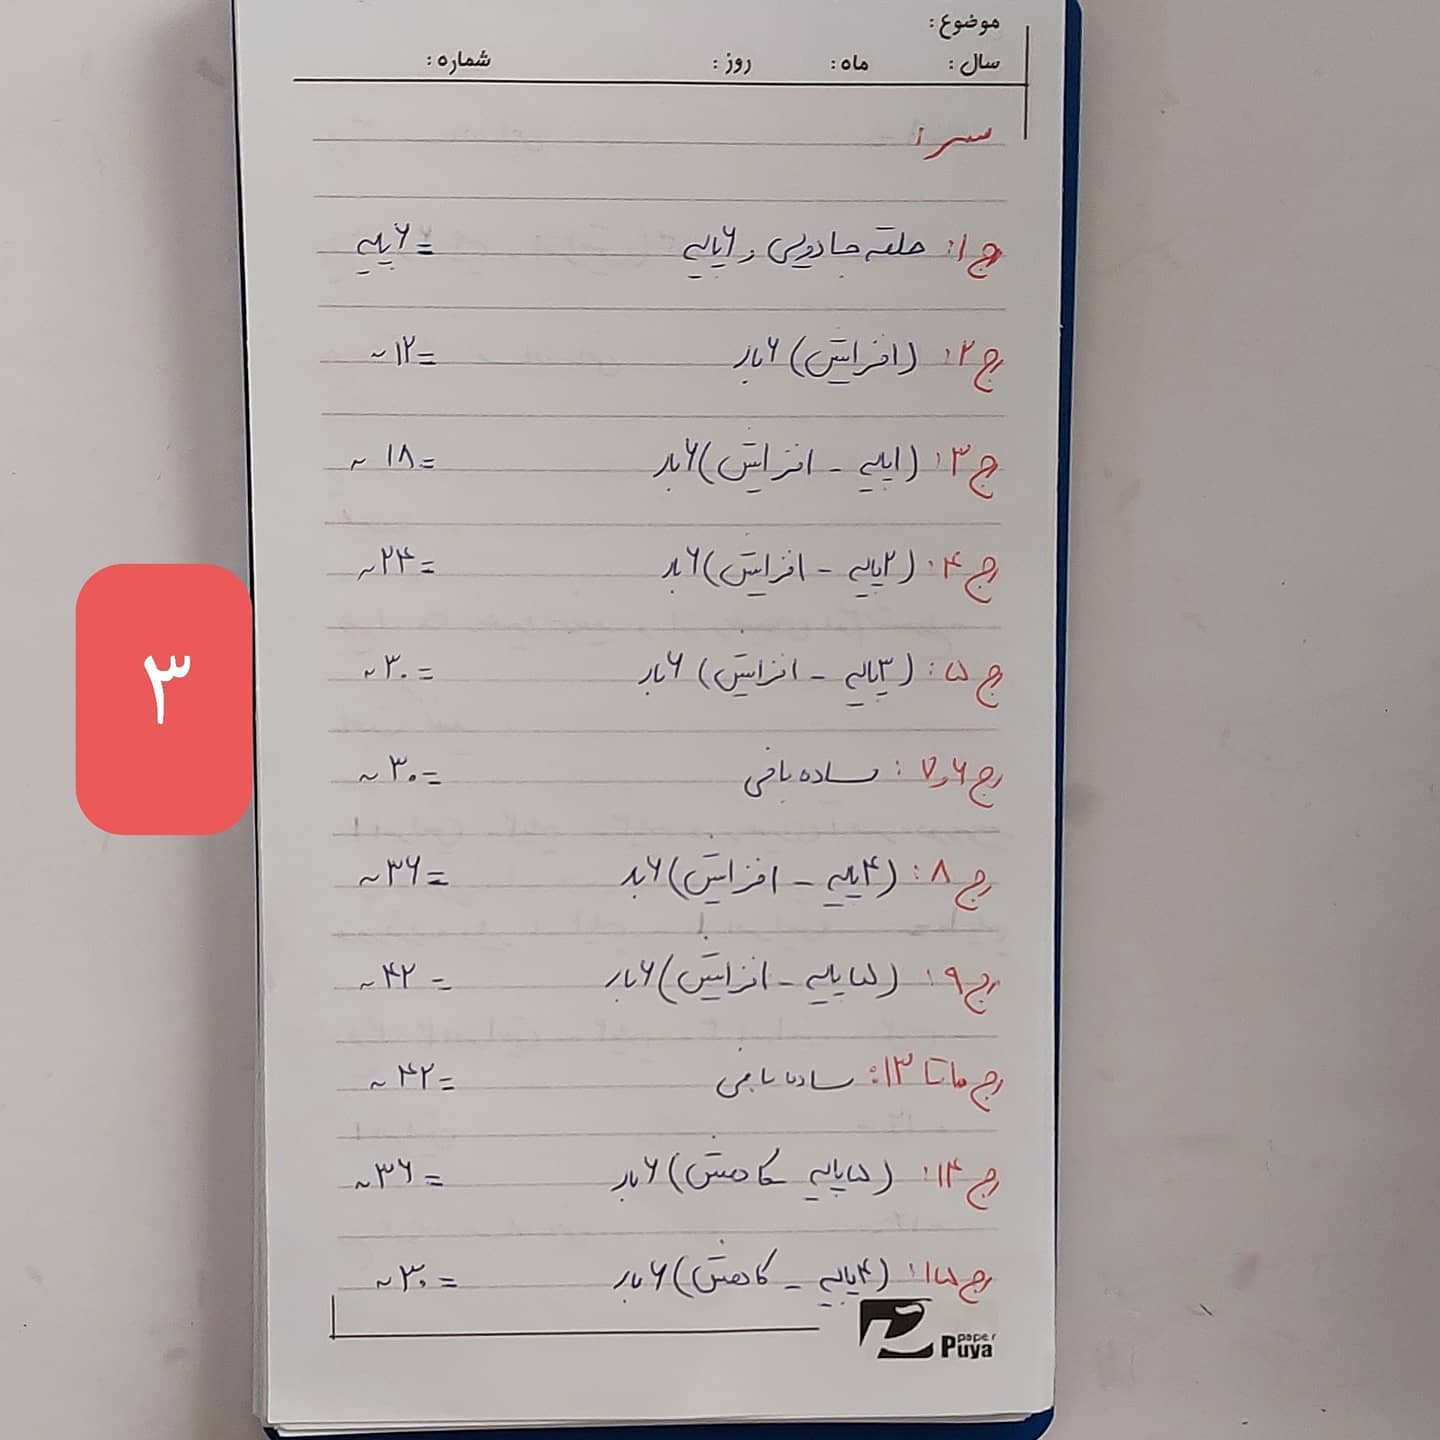 موضوع :
سال : ماه : روز : شماره :
سر :
رج ۱: حلقه جادویی و ۶ پایه =۶ پایه
رج ۲: (افزایش) ۶ بار =۱۲ ~
رج ۳: (۱پایه - افزایش) ۶ بار =۱۸ ~
رج ۴: (۲پایه - افزایش) ۶ بار =۲۴ ~
رج ۵: (۳پایه - افزایش) ۶ بار =۳۰ ~
رج ۶و۷: ساده بافی =۳۰ ~
رج ۸: (۴پایه - افزایش) ۶ بار =۳۶ ~
رج ۹: (۵ پایه - افزایش) ۶ بار =۴۲ ~
رج ۱۰ تا ۱۳: ساده بافی =۴۲ ~
رج ۱۴: (۵ پایه کاهش) ۶ بار =۳۶ ~
رج ۱۵: (۴پایه - کاهش) ۶ بار =۳۰ ~
۳
paper
Puya